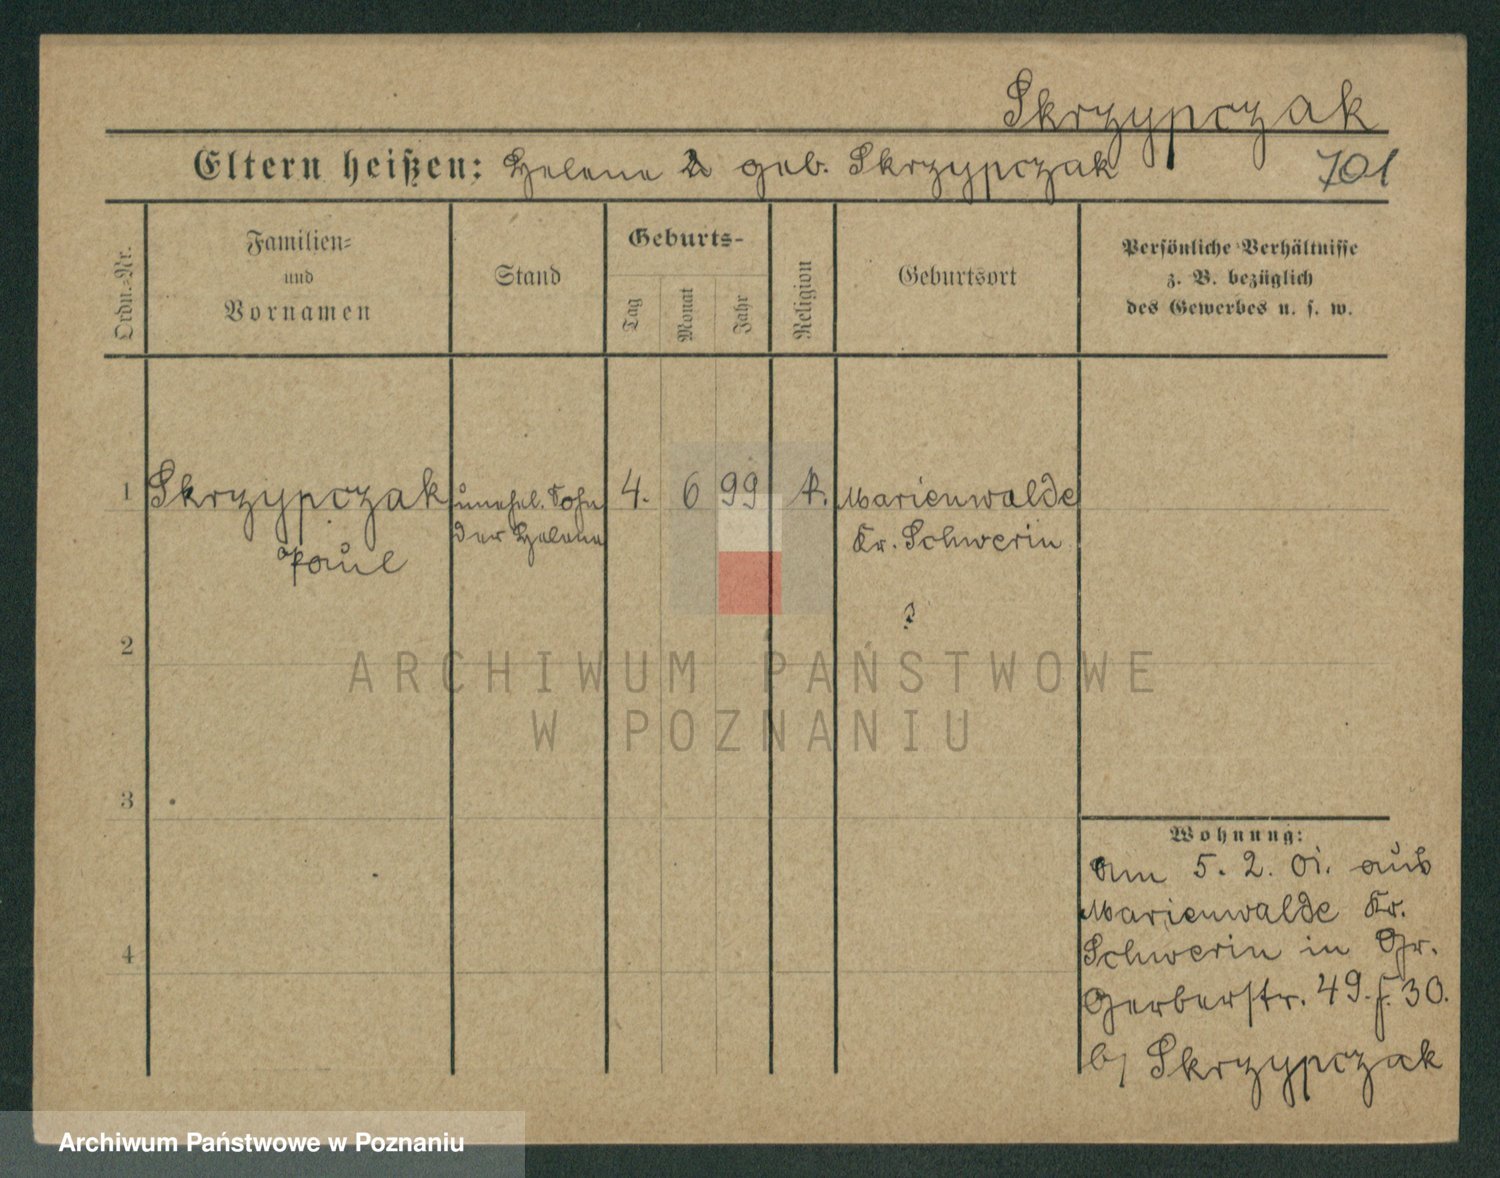 Skrzypczak
Eltern heißen: Helene geb. Skrzypczak 701
Ordn.-Nr.
Familien-
und
Vornamen
Stand
Geburts-
Tag
Monat
Jahr
Religion
Geburtsort
Persönliche Verhältnisse
z. B. bezüglich
des Gewerbes u. s. w.
1 Skrzypczak unehel. Sohn 4. 6 99 k. Marienwalde
der Helene Kr. Schwerin
Paul
?
2
3
4
Wohnung:
Am 5. 2. 01. aus
Marienwalde Kr.
Schwerin in Gr.
Gerberstr. 49. f. 30.
b/ Skrzypczak
ARCHIWUM PAŃSTWOWE
W POZNANIU
Archiwum Państwowe w Poznaniu